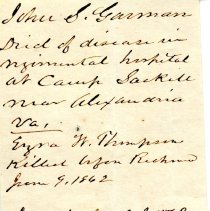 John S. Garman
Died of disease in
regimental hospital
at Camp Sackett
near Alexandria
Va.
Ezra W. Thompson
Killed
June 9, 1862